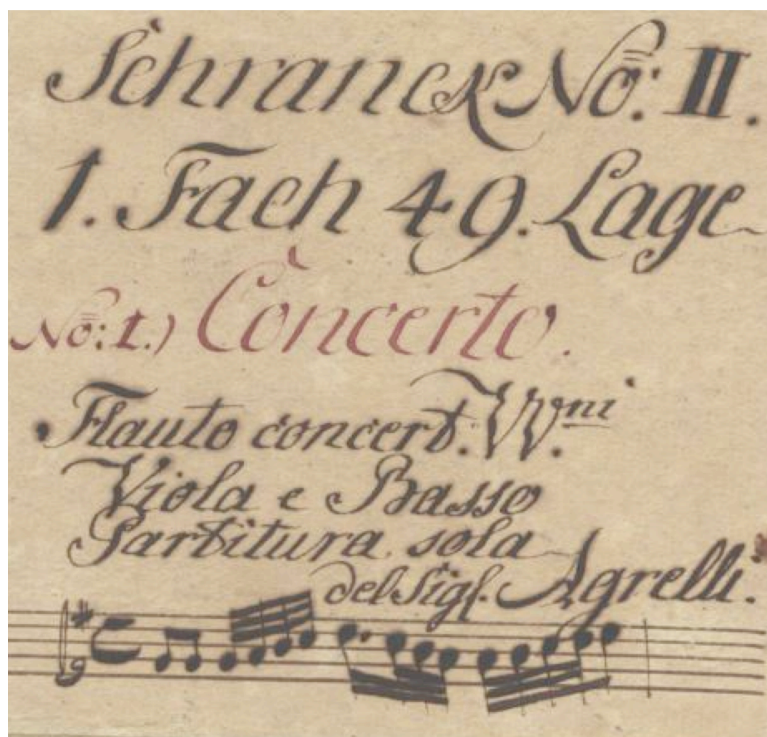 Schranck No: II.
1. Fach 49. Lage
No: 1.) Concerto.
Flauto concert. VV.ni
Viola e Basso
Partitura sola
del Sigr. Agrelli.